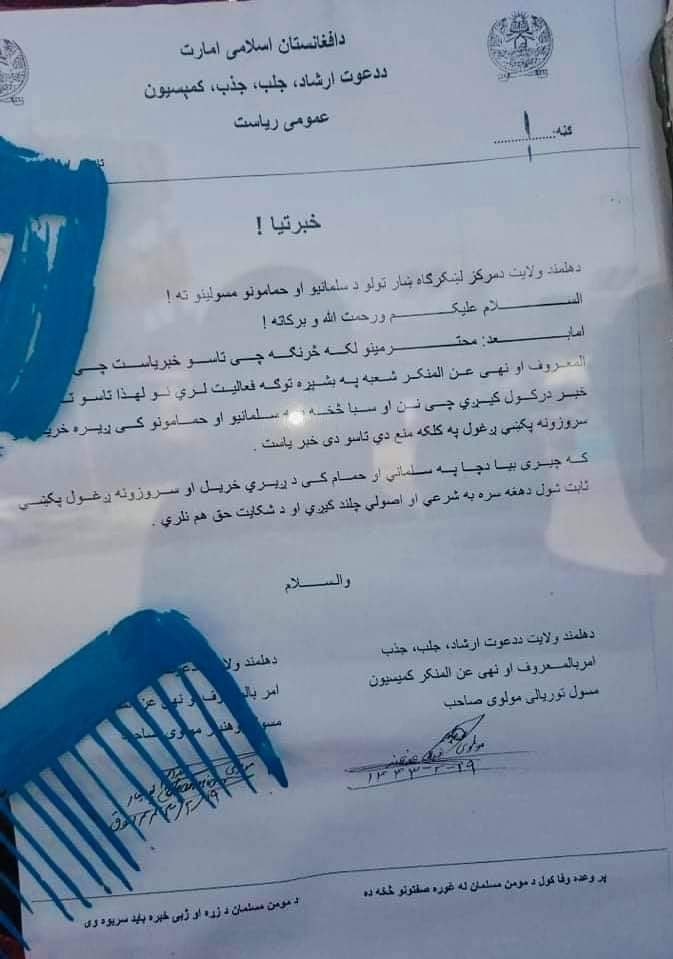 دافغانستان اسلامی امارت
ددعوت ارشاد، جلب، جذب، کمېسیون
عمومی ریاست
ګڼه:............
۱
خبرتیا !
دهلمند ولایت دمرکز لښکرګاه ښار ټولو د سلمانیو او حمامونو مسولینو ته !
الســـلام علیکـــم ورحمت الله و برکاته !
امابـــعد: محتـــرمینو لکه څرنګه چې تاسو خبریاست چې
المعروف او نهی عن المنکر شعبه په بشپړه توګه فعالیت لري نو لهذا تاسو ته
خبر درکول کیږي چې نن او سبا څخه په سلمانیو او حمامونو کې ږیره خریل
سروزونه پکښې ږغول په کلکه منع دي تاسو دې خبر یاست .
که چیرې بیا دچا په سلمانۍ او حمام کې د ږیرې خریل او سروزونه ږغول پکښې
ثابت شول دهغه سره به شرعي او اصولي چلند کیږي او د شکایت حق هم نلري .
والســـلام
دهلمند ولایت ددعوت ارشاد، جلب، جذب
امربالمـعروف او نهی عن المنکر کمیسیون
مسول توریالی مولوی صاحب
مولوی
۱۴۴۳-۲-۱۹
دهلمند ولا
امر بالم روف او نهی عن
مولوی صاحب
مولوی
پر وعده وفا کول د مومن مسلمان له غوره صفتونو څخه ده
د مومن مسلمان د زړه او ژبې خبره باید سریوه وی